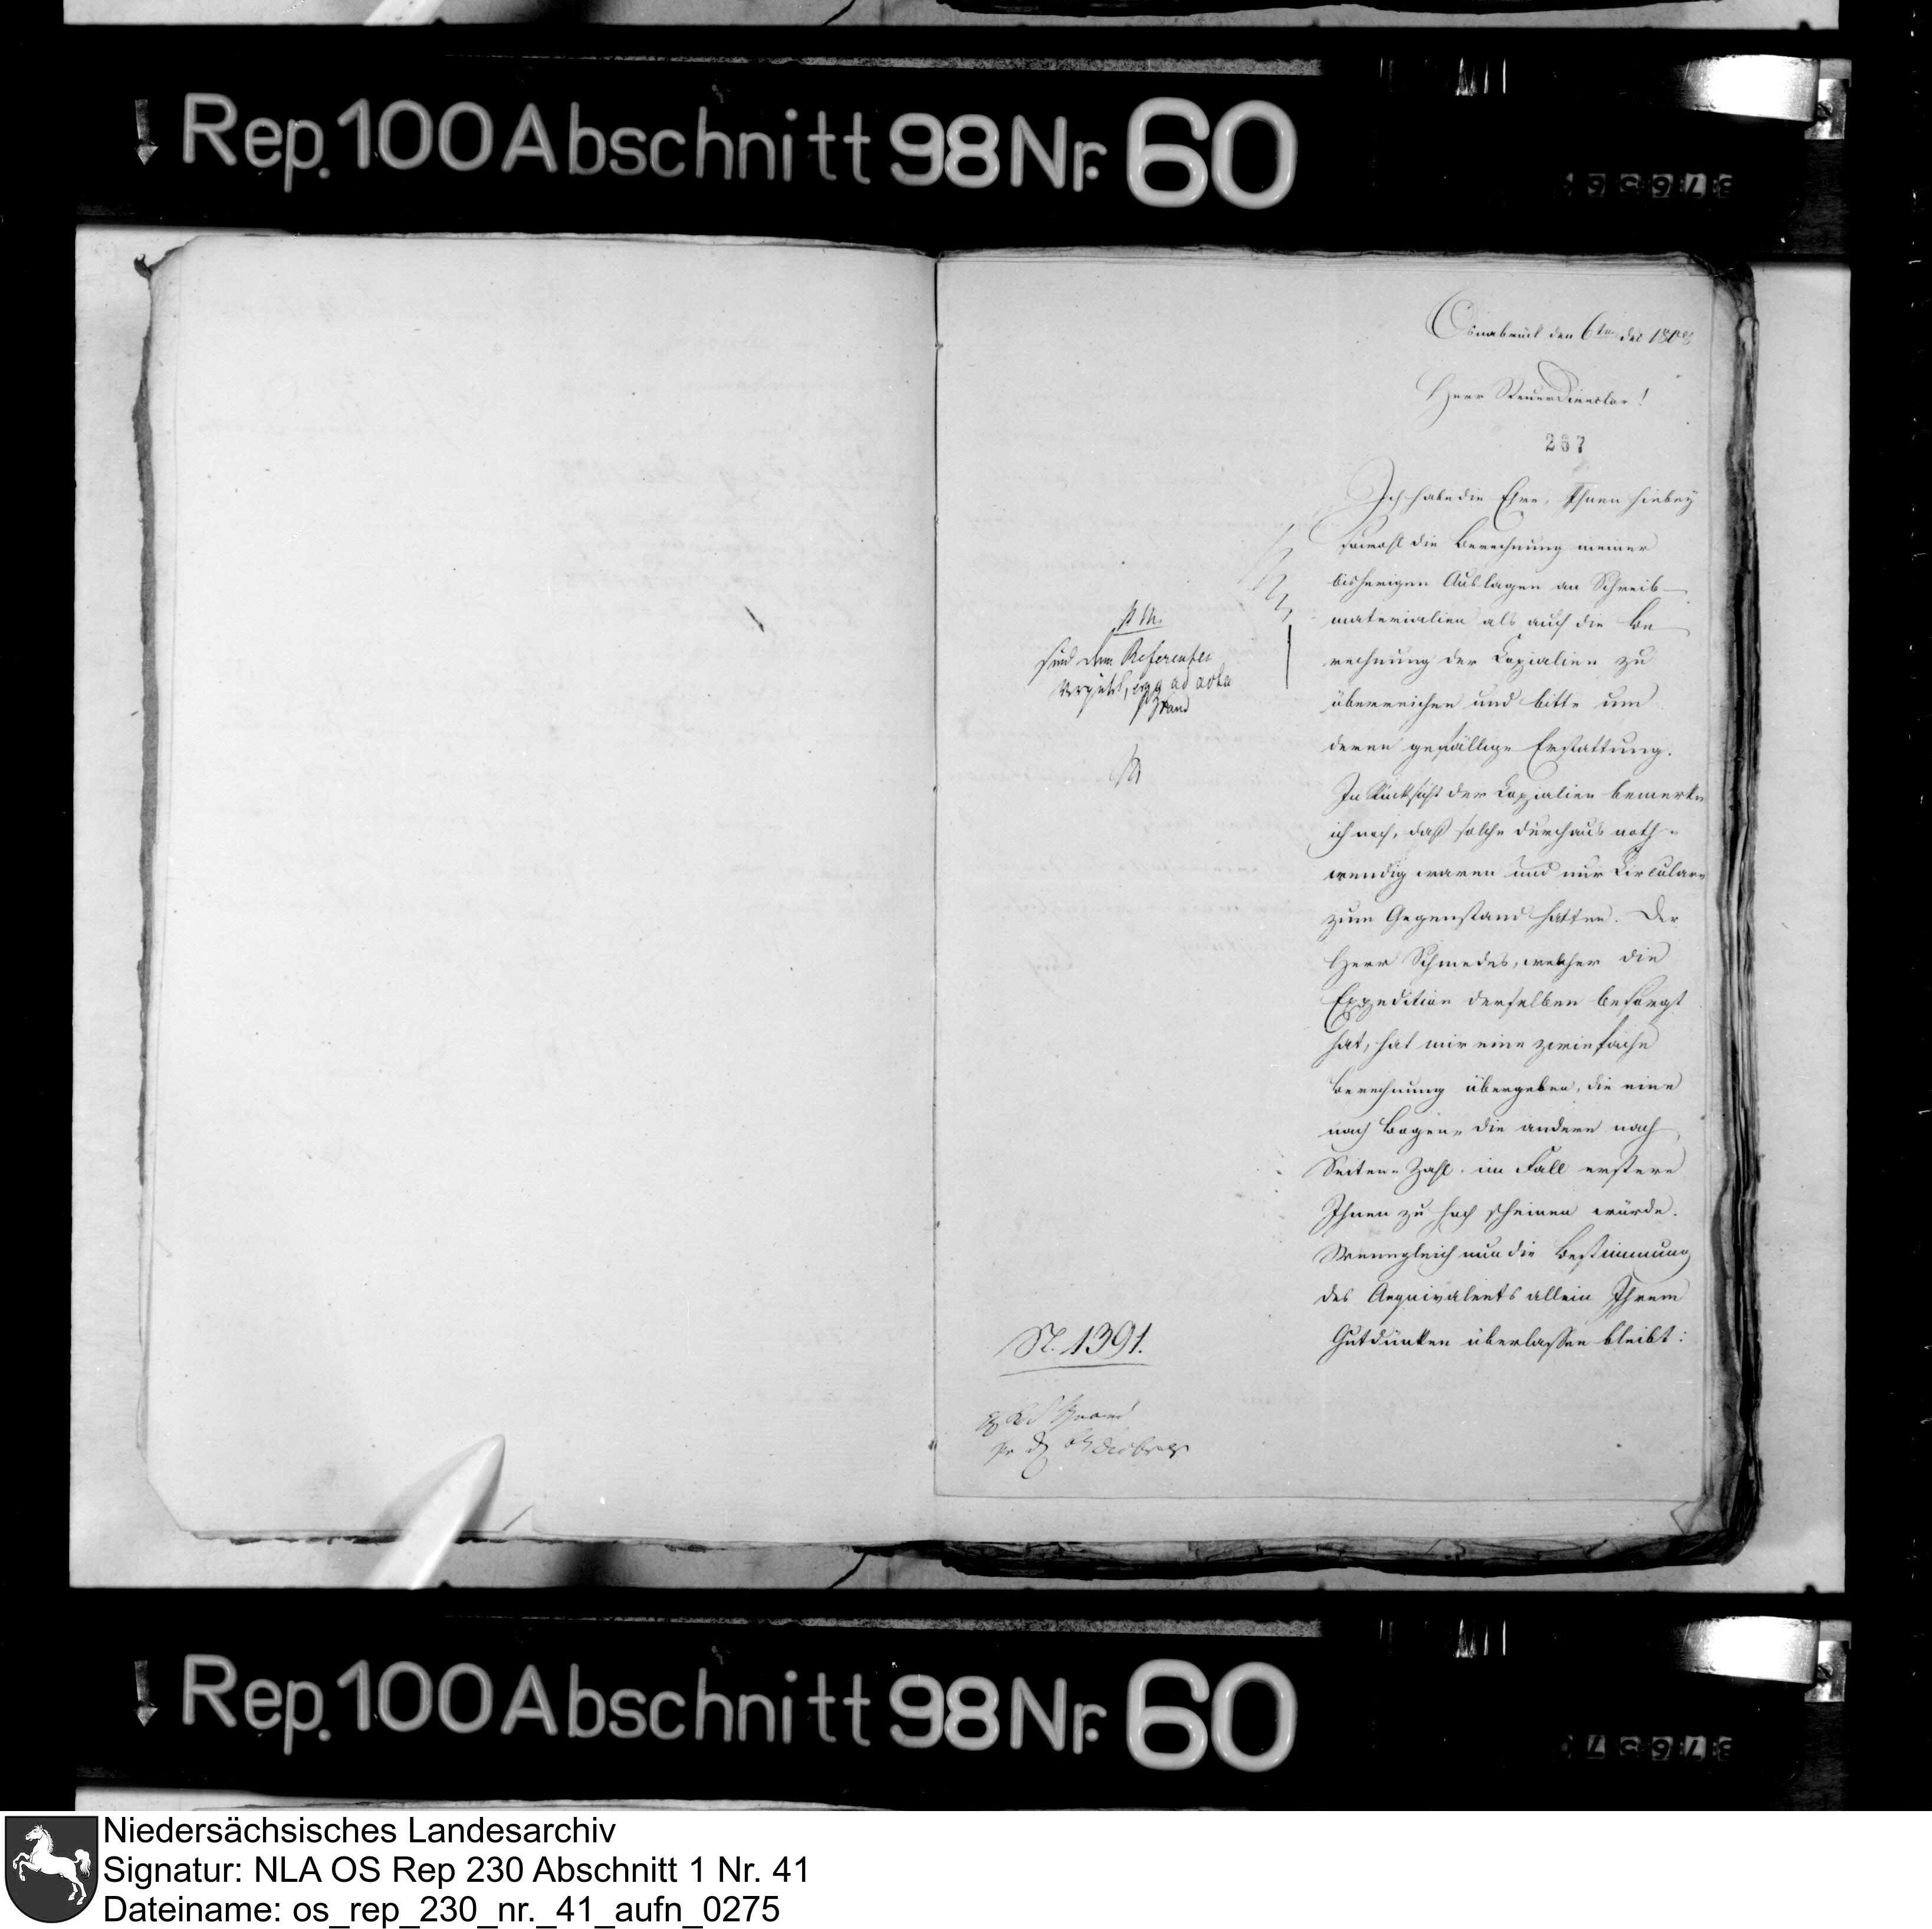 Rep. 100 Abschnitt 98 Nr. 60
Osnabrück den 6ten
Herr SteuerDirector!
267
Ich habe die Ehre, Ihnen hiebey
sowohl die Berechnung meiner
bisherigen Auslagen an Schreib-
materialien als auch die Be
rechnung der Copialien zu
überreichen und bitte um
deren gefällige Erstattung.
In Rücksicht der Copialien bemerke
ich noch, daß solche durchaus noth-
wendig waren und nur Circulare
zum Gegenstand hatten. Der
Herr Schmedes, welcher die
Expedition derselben besorgt
hat, hat mir eine zwiefache
Berechnung übergeben, die eine
nach Bogen- die andere nach
Seiten-Zahl, im Fall erstere
Ihnen zu hoch scheinen würde.
Wenngleich nun die Bestimmung
des Aequivalents allein Ihrem
Gutdünken überlassen bleibt:
p. m.
sind dem Referenten
ad acta
N. 1391.
Rep. 100 Abschnitt 98 Nr. 60
Niedersächsisches Landesarchiv
Signatur: NLA OS Rep 230 Abschnitt 1 Nr. 41
Dateiname: os_rep_230_nr._41_aufn_0275